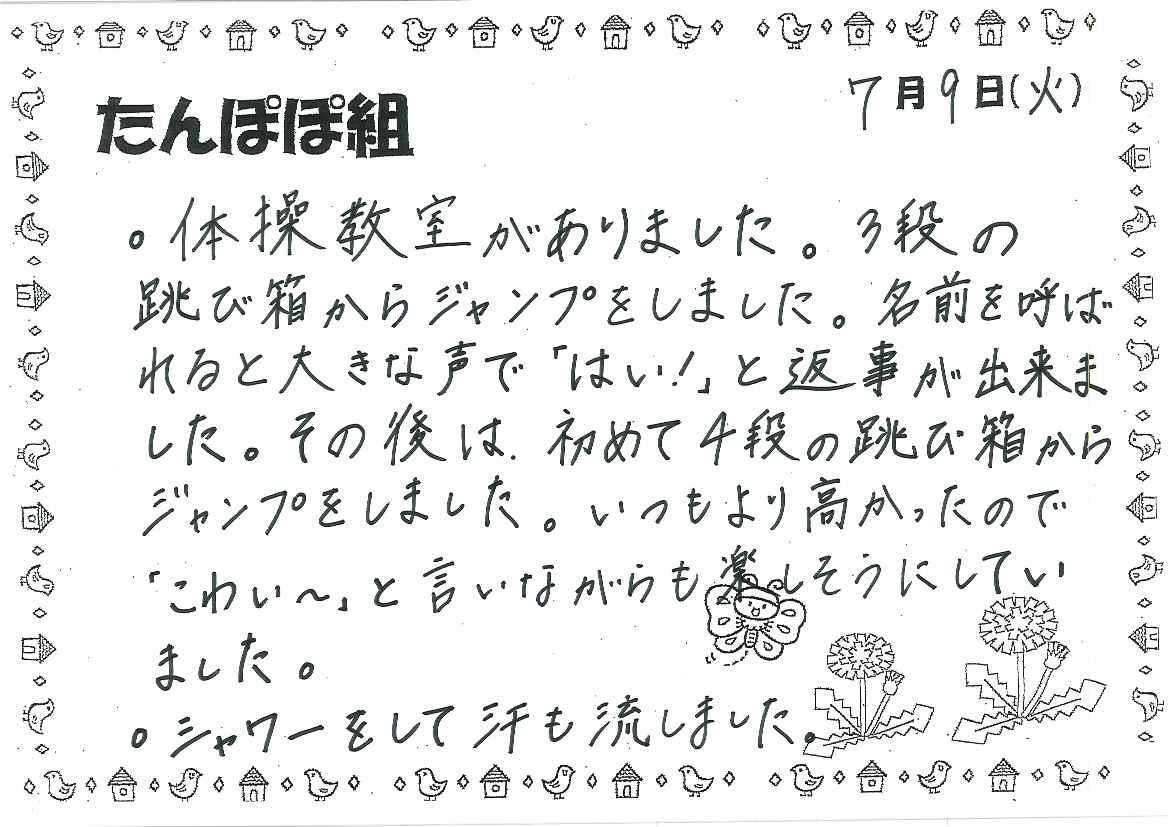 たんぽぽ組
7月9日(火)
。体操教室がありました。3段の
跳び箱からジャンプをしました。名前を呼ば
れると大きな声で「はい!」と返事が出来ま
した。その後は、初めて4段の跳び箱から
ジャンプをしました。いつもより高かったので
「こわい〜」と言いながらも楽しそうにしてい
ました。
。シャワーをして汗も流しました。